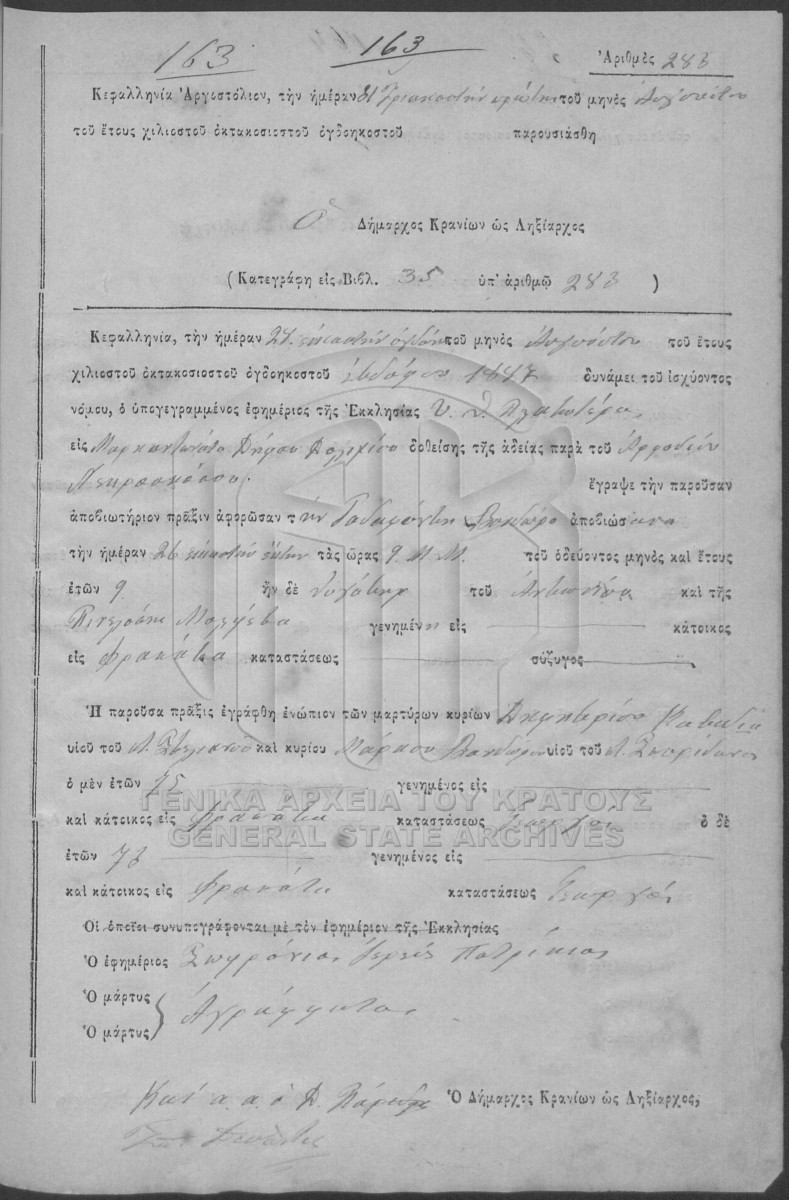 163 163 Ἀριθμὸς 283
Κεφαλληνία Ἀργοστόλιον, τὴν ἡμέραν 31 τριακοστὴν πρώτην τοῦ μηνὸς Αὐγούστου
τοῦ ἔτους χιλιοστοῦ ὀκτακοσιοστοῦ ὀγδοηκοστοῦ παρουσιάσθη
Ὁ Δήμαρχος Κρανίων ὡς Ληξίαρχος
(Κατεγράφη εἰς Βιβλ. 35 ὑπ' ἀριθμῷ 283 )
Κεφαλληνία, τὴν ἡμέραν εἰκοστὴν ὀγδόην τοῦ μηνὸς Αὐγούστου τοῦ ἔτους
χιλιοστοῦ ὀκτακοσιοστοῦ ὀγδοηκοστοῦ ἑβδόμου δυνάμει τοῦ ἰσχύοντος
νόμου, ὁ ὑπογεγραμμένος ἐφημέριος τῆς Ἐκκλησίας Υ. Θ. Πλατυτέρα
εἰς Δήμου δοθείσης τῆς ἀδείας παρὰ τοῦ
ἔγραψε τὴν παροῦσαν
ἀποβιωτήριον πρᾶξιν ἀφορῶσαν τὴν ἀποβιώσασα
τὴν ἡμέραν 26 εἰκοστὴν ἕκτην τὰς ὥρας 9 Μ.Μ. τοῦ ὁδεύοντος μηνὸς καὶ ἔτους
ἐτῶν 9 ἣν δὲ θυγάτηρ τοῦ Ἀντωνίου καὶ τῆς
γενημένη εἰς κάτοικος
εἰς Φρακάτα καταστάσεως σύζυγος
Ἡ παροῦσα πρᾶξις ἐγράφθη ἐνώπιον τῶν μαρτύρων κυρίων Δημητρίου
υἱοῦ τοῦ καὶ κυρίου Μάρκου υἱοῦ τοῦ Σπυρίδωνος
ὁ μὲν ἐτῶν 75 γενημένος εἰς
ΓΕΝΙΚΑ ΑΡΧΕΙΑ ΤΟΥ ΚΡΑΤΟΥΣ
καὶ κάτοικος εἰς Φρακάτα καταστάσεως Γεωργός ὁ δὲ
GENERAL STATE ARCHIVES
ἐτῶν 73 γενημένος εἰς
καὶ κάτοικος εἰς Φρακάτα καταστάσεως Γεωργός
Οἱ ὁποῖοι συνυπογράφονται μὲ τὸν ἐφημέριον τῆς Ἐκκλησίας
Ὁ ἐφημέριος Σωφρόνιος Ἱερεὺς Πατρίκιος
Ὁ μάρτυς
Ἀγράμματοι
Ὁ μάρτυς
Ὁ Δήμαρχος Κρανίων ὡς Ληξίαρχος,